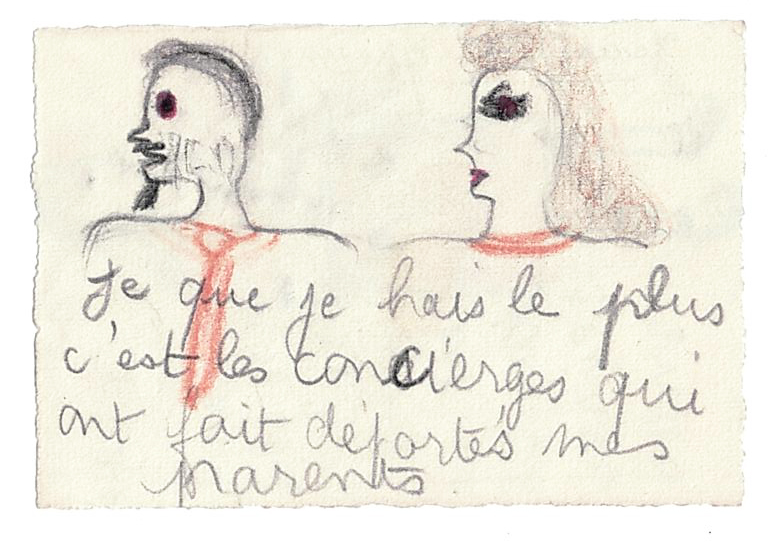 Je que je hais le plus
c'est les concierges qui
ont fait déportés mes
parents